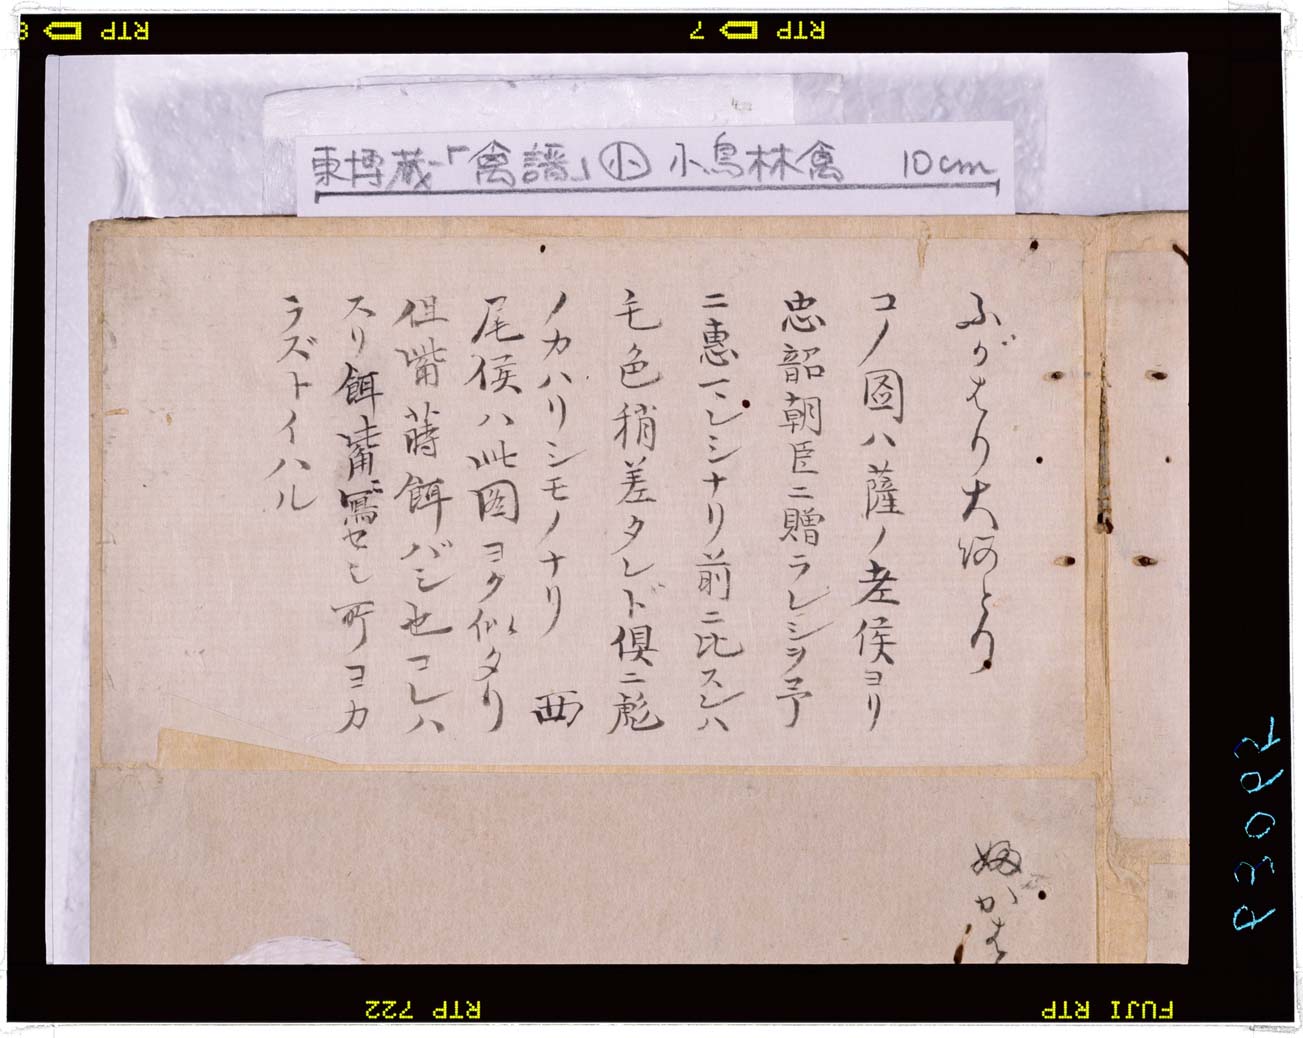 RTP 7 RTP 8
東博蔵「禽譜」小 小鳥林禽 10cm
ふがはり大河とり
コノ圖ハ薩ノ老侯ヨリ
忠韶朝臣ニ贈ラレシヲ予
ニ惠マレシナリ前ニ比スレハ
毛色稍差タレド倶ニ彪
ノカハリシモノナリ 西
尾侯ハ此図ヨク似タリ
但嘴蒔餌バシ也コレハ
スリ餌嘴ニ寫セシ所ヨカ
ラズトイハル
婦がは
P30R2
FUJI RTP RTP 722